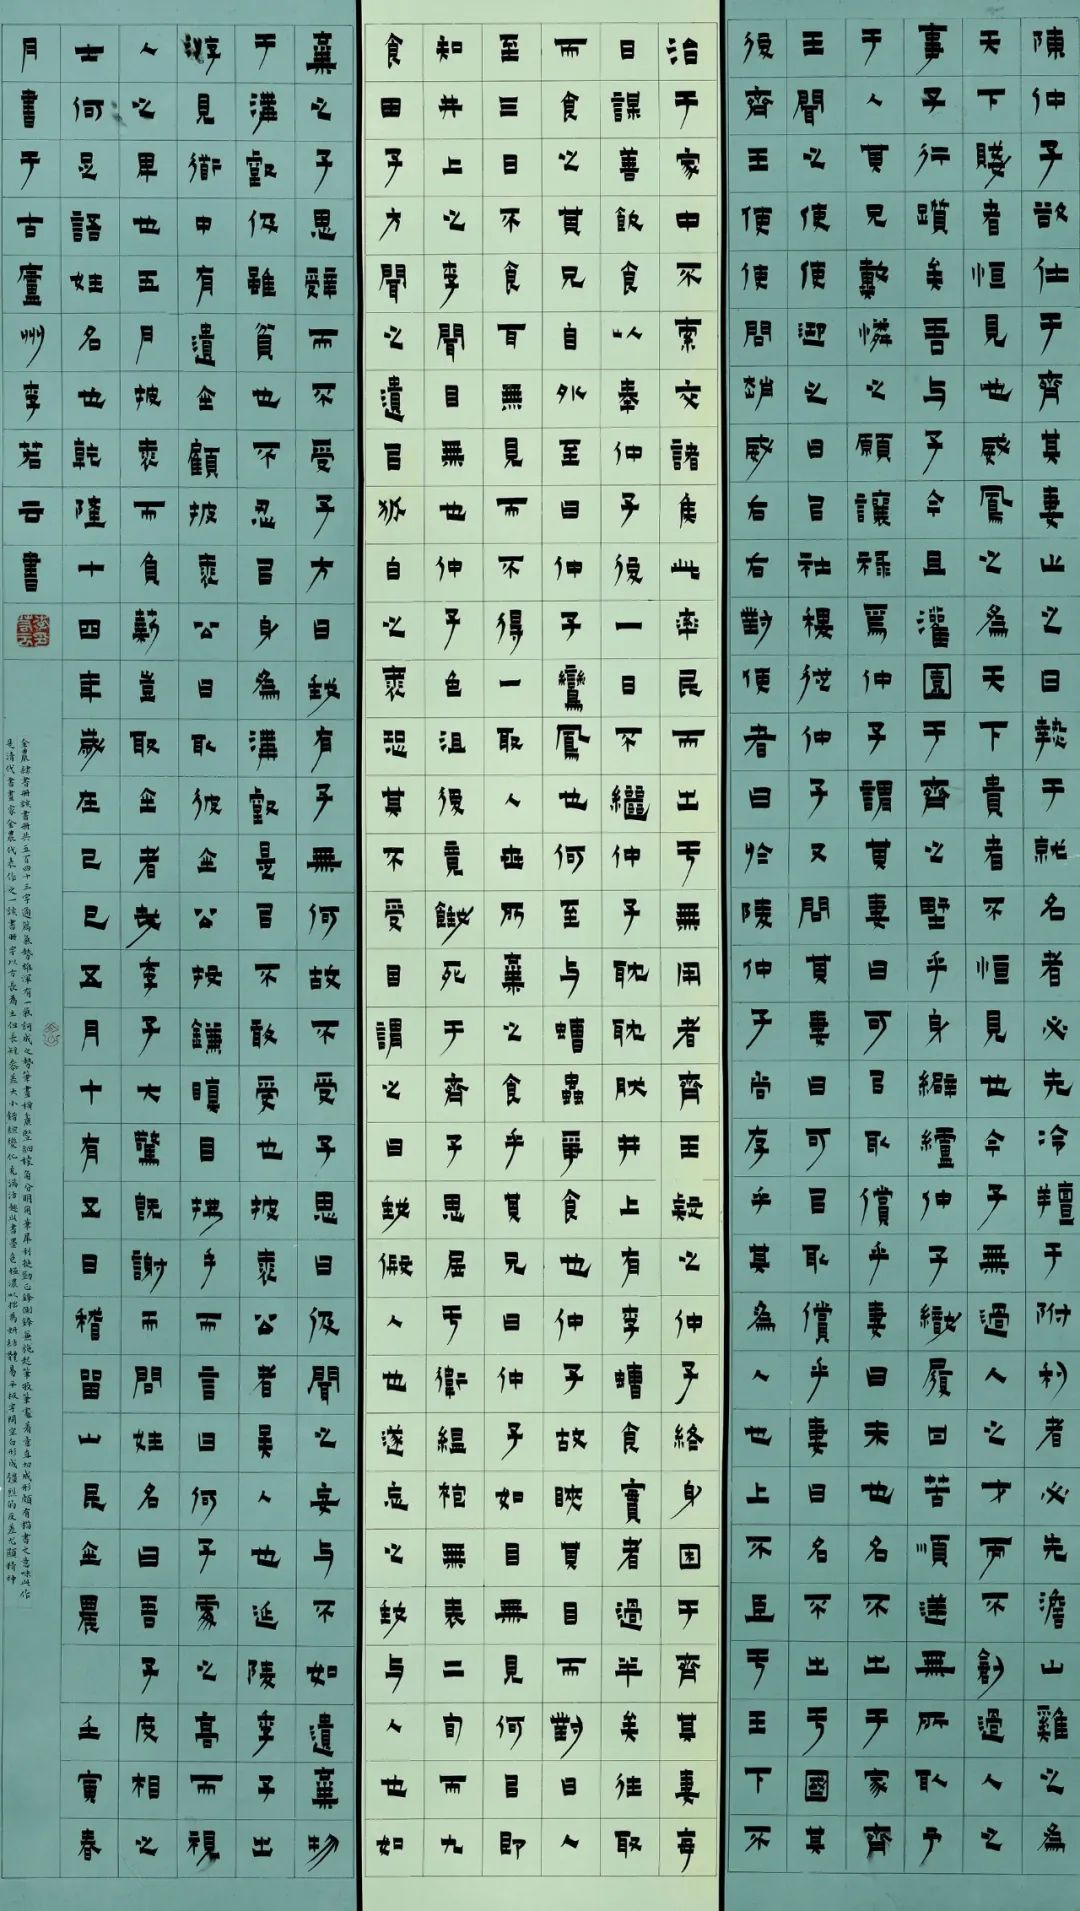 陳仲子仕于齊其妻止之曰熱于就名者必先冷羶于附利者必先澹山雞之為
天下賤者恒見也威鳳之為天下貴者不恒見也今子無過人之才而不創過人之
事子行躓矣吾与子今且灌園于齊之野乎身繴纑仲子織履曰苦順遂無所取予
于人其兄戴憐之願讓祿焉仲子謂其妻曰可㠯取償乎妻曰未也名不出于家齊
王聞之使使迎之曰㠯社稷從仲子又問其妻曰可㠯取償乎妻曰名不出于國其
後齊王使使問趙威后后對使者曰於陵仲子尚存乎其為人也上不臣于王下不
治于家中不索交諸侯此率民而出于無用者齊王疑之仲子絡身困于齊其妻每
日謀善飯食以奉仲子後一日不繼仲子耽耽映井上有李螬食實者過半矣往取
而食之其兄自外至曰仲子鸞鳳也何至与螬蟲爭食也仲子故䀹其目而對曰人
至三日不食耳無見而不得一取人世所棄之食乎其兄曰仲子如目無見何㠯即
知井上之李聞目無也仲子色沮後竟餓死于齊子思居于衛縕袍無表二旬而九
食田子方聞之遺㠯狐白之裘恐其不受因謂之曰我假人也遂忘之我与人也如
棄之子思辭而不受子方曰我有子無何故不受子思曰伋聞之妄与不如遺棄物
于溝壑伋雖貧也不忍㠯身為溝壑是㠯不敢受也披裘公者吳人也延陵季子出
游見衢中有遺金顧披裘公曰取彼金公投鎌瞋目拂手而言曰何子處之高而視
人之卑也五月披裘而負薪豈取金者哉季子大驚既謝而問姓名曰吾子皮相之
士何足語姓名也乾隆十四年歲在己巳五月十有五日稽留山民金農 壬寅春
月書于古廬州李若云書
金農隸書冊該書冊共五百四十三字通篇氣勢雄渾有一氣訶成之勢
是清代書畫家金農代表作之一該書冊字以方長為主